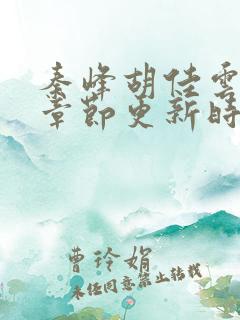 秦峰胡佳雲
章節更新時
曹玲娟
未经同意禁止转载